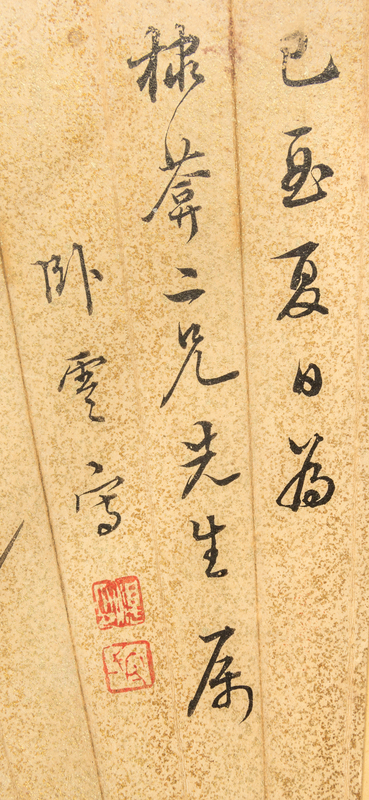 己酉夏日為
棣葊二兄先生属
卧雲寫